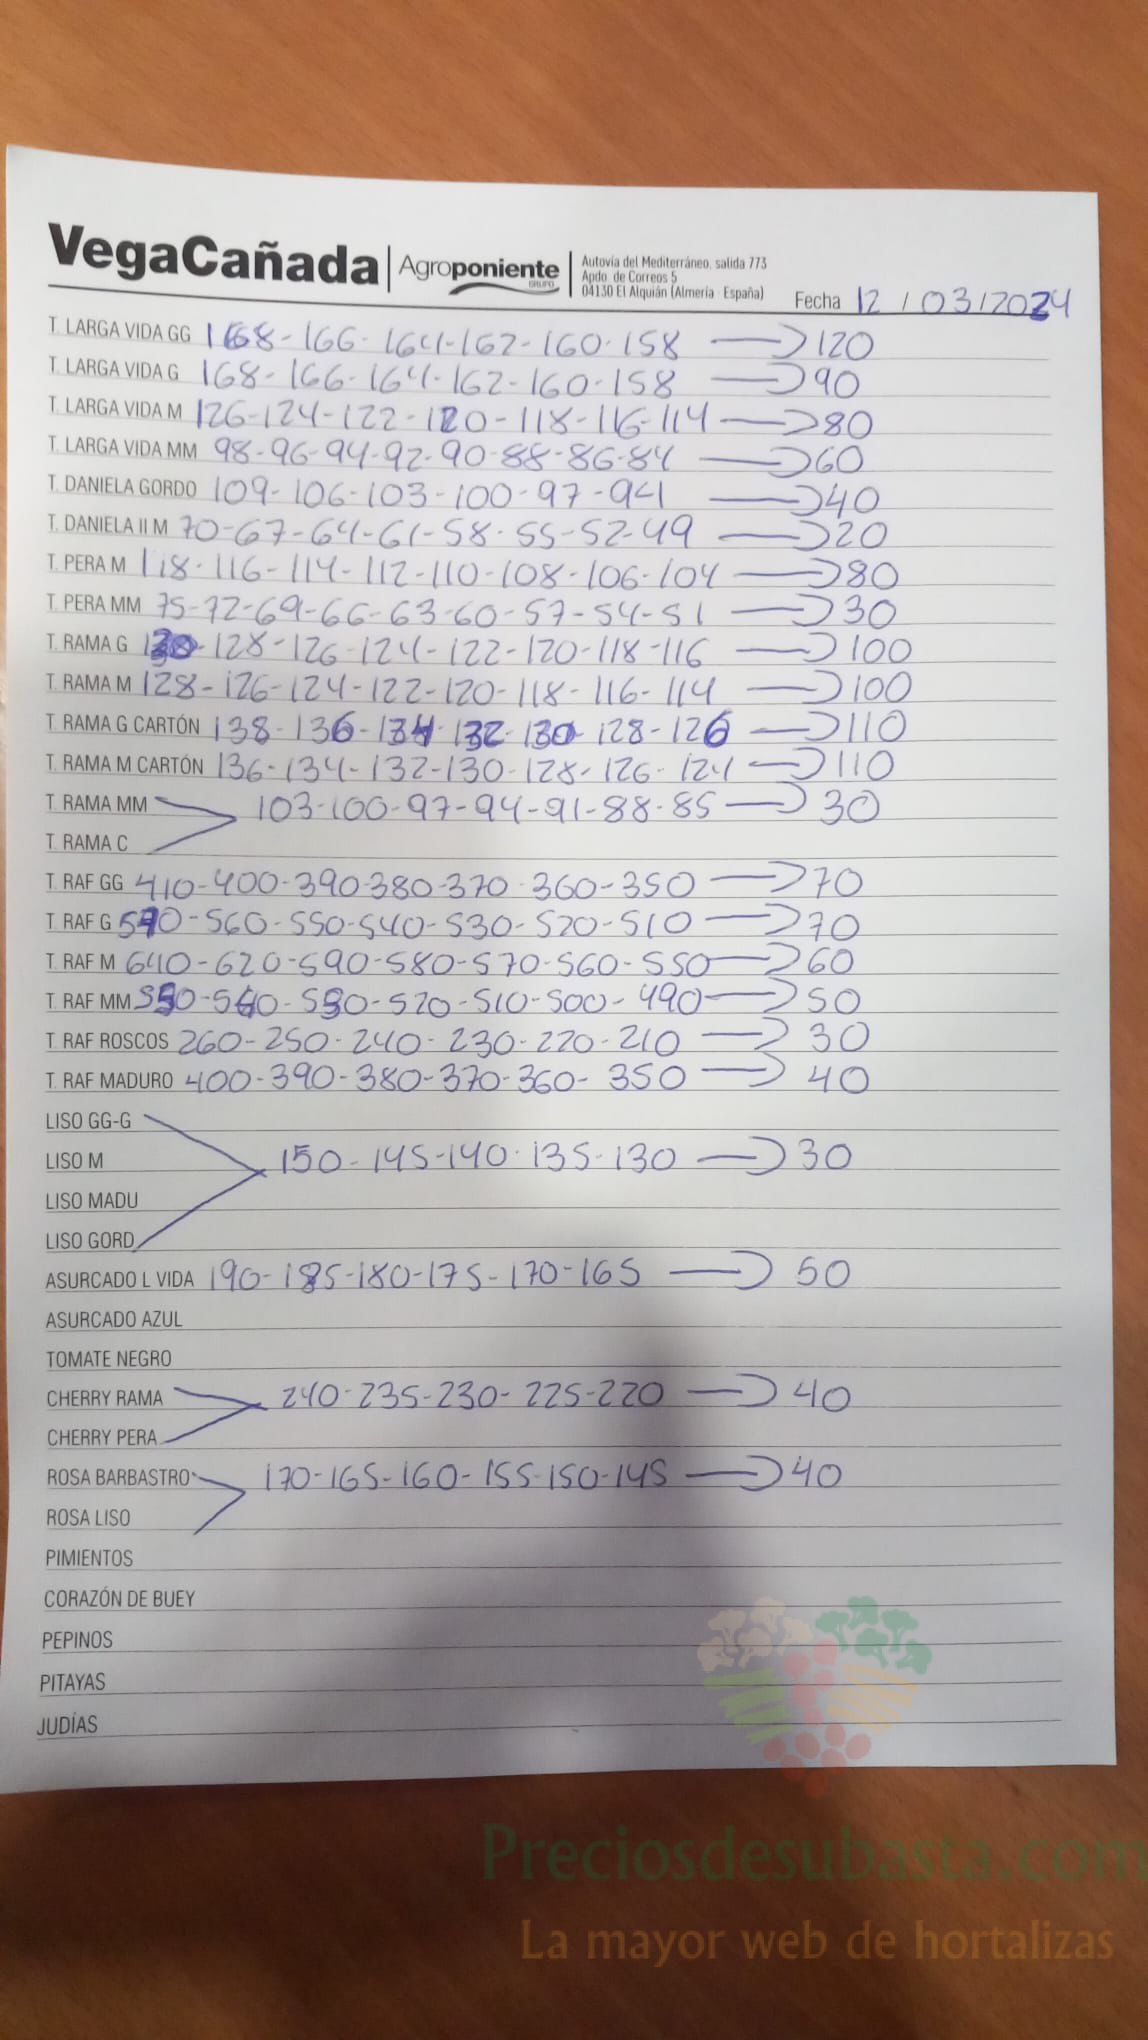 VegaCañada | Agroponiente GRUPO | Autovía del Mediterráneo, salida 773
Apdo. de Correos 5
04130 El Alquián (Almería - España)
Fecha 12 / 03 / 2024
T. LARGA VIDA GG 168-166-164-162-160-158 → 120
T. LARGA VIDA G 168-166-164-162-160-158 → 90
T. LARGA VIDA M 126-124-122-120-118-116-114 → 80
T. LARGA VIDA MM 98-96-94-92-90-88-86-84 → 60
T. DANIELA GORDO 109-106-103-100-97-94 → 40
T. DANIELA II M 70-67-64-61-58-55-52-49 → 20
T. PERA M 118-116-114-112-110-108-106-104 → 80
T. PERA MM 75-72-69-66-63-60-57-54-51 → 30
T. RAMA G 130-128-126-124-122-120-118-116 → 100
T. RAMA M 128-126-124-122-120-118-116-114 → 100
T. RAMA G CARTÓN 138-136-134-132-130-128-126 → 110
T. RAMA M CARTÓN 136-134-132-130-128-126-124 → 110
T. RAMA MM 103-100-97-94-91-88-85 → 30
T. RAMA C
T. RAF GG 410-400-390-380-370-360-350 → 70
T. RAF G 570-560-550-540-530-520-510 → 70
T. RAF M 640-620-590-580-570-560-550 → 60
T. RAF MM 550-540-530-520-510-500-490 → 50
T. RAF ROSCOS 260-250-240-230-220-210 → 30
T. RAF MADURO 400-390-380-370-360-350 → 40
LISO GG-G
LISO M 150-145-140-135-130 → 30
LISO MADU
LISO GORD
ASURCADO L VIDA 190-185-180-175-170-165 → 50
ASURCADO AZUL
TOMATE NEGRO
CHERRY RAMA 240-235-230-225-220 → 40
CHERRY PERA
ROSA BARBASTRO 170-165-160-155-150-145 → 40
ROSA LISO
PIMIENTOS
CORAZÓN DE BUEY
PEPINOS
PITAYAS
JUDÍAS
Preciosdesubasta.com
La mayor web de hortalizas